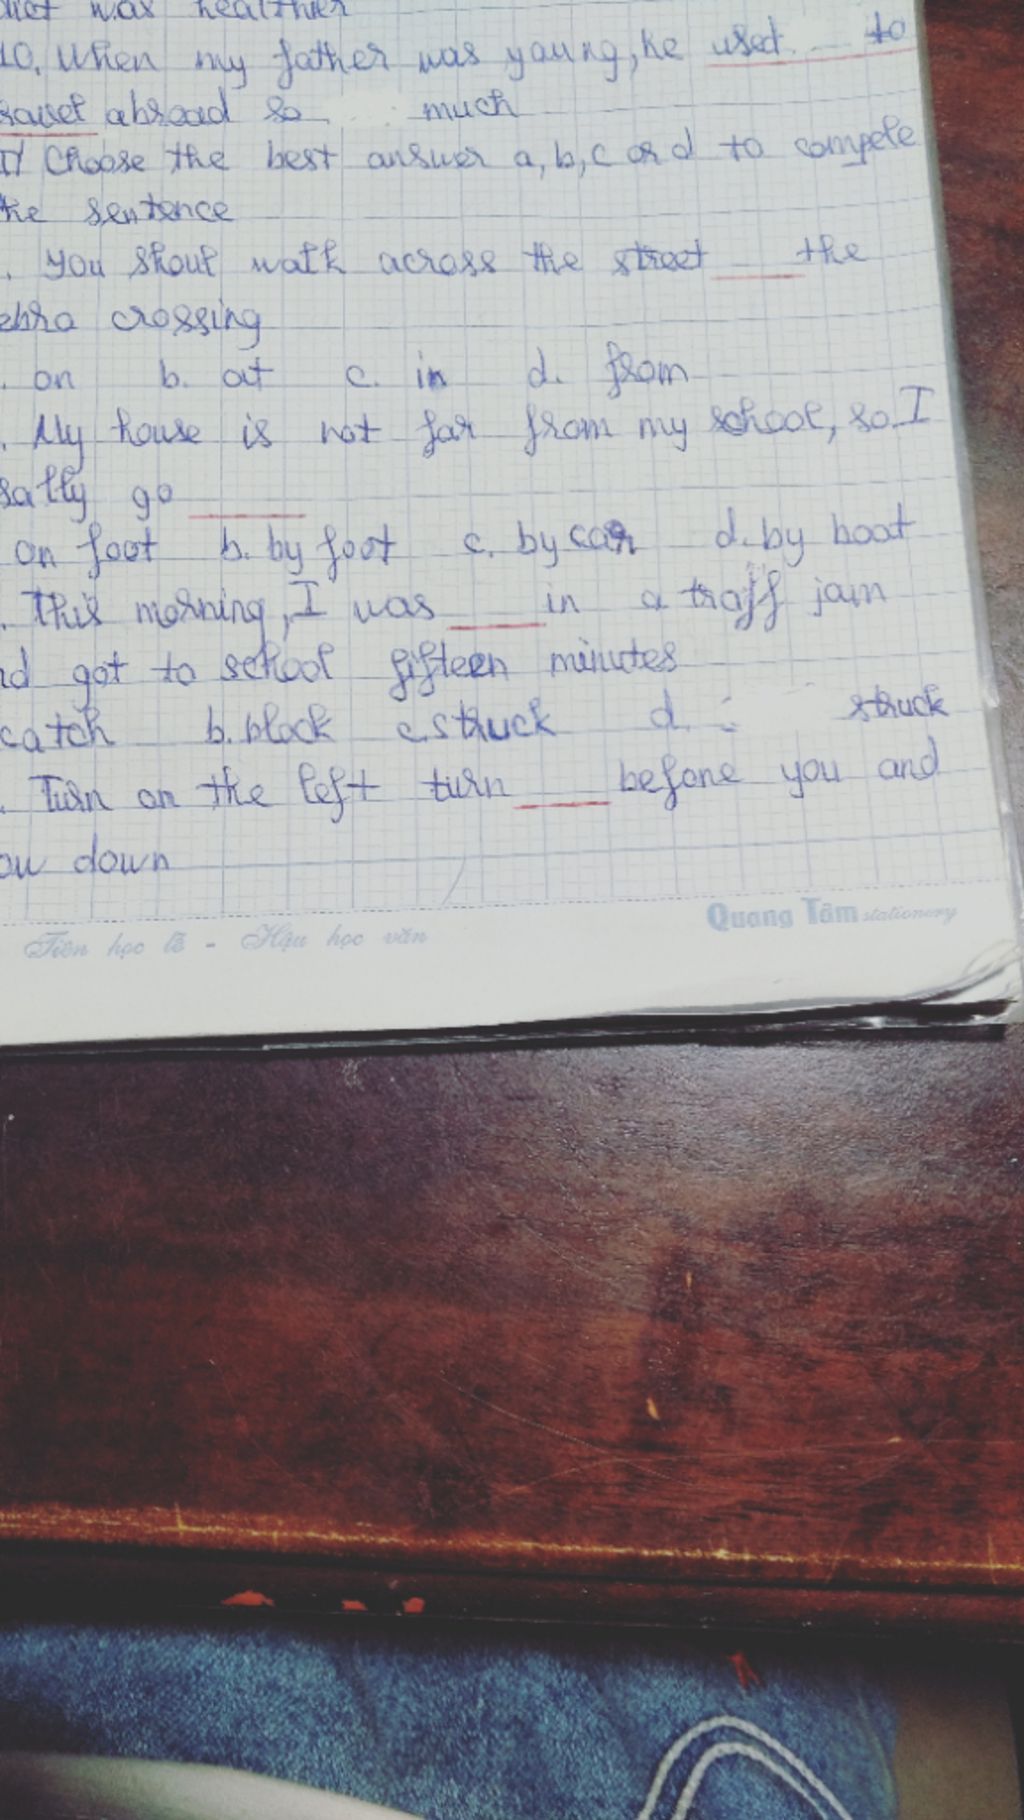 was healthier
10. When my father was young, he used to
ravel abroad so much
II/ Choose the best answer a, b, c or d to compele
he sentence
. you shoul walk across the street ___ the
ebra crossing
. on b. at c. in d. from
. My house is not far from my school, so I
sally go ___
on foot b. by foot c. by car d. by boat
. This morning, I was ___ in a traff jam
nd got to school fifteen minutes
catch b. block c. struck d. struck
. Turn on the left turn ___ before you and
ow down
Tiên học lễ - Hậu học văn
Quang Tâm stationery